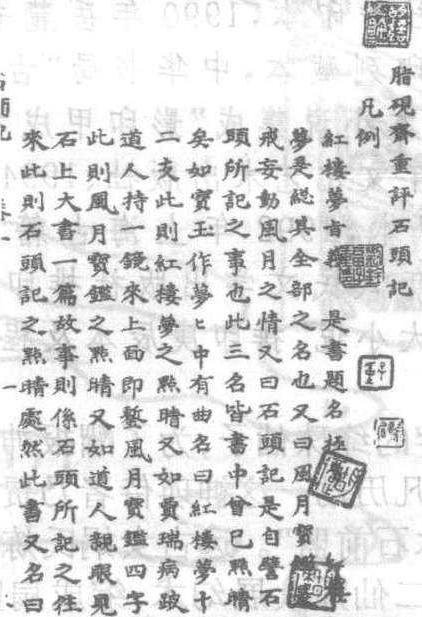 脂硯齋重評石頭記
凡例
紅樓夢旨 是書題名極 紅樓
夢是総其全部之名也又曰風月寶
戒妄動風月之情又曰石頭記是自譬石
頭所記之事也此三名皆書中曾已點睛
矣如寶玉作夢ヒ中有曲名曰紅樓夢十
二支此則紅樓夢之點睛又如賈瑞病跛
道人持一鏡來上面即鏨風月寶鑑四字
此則風月寶鑑之點睛又如道人親眼見
石上大書一篇故事則係石頭所記之往
來此則石頭記之點睛處然此書又名曰